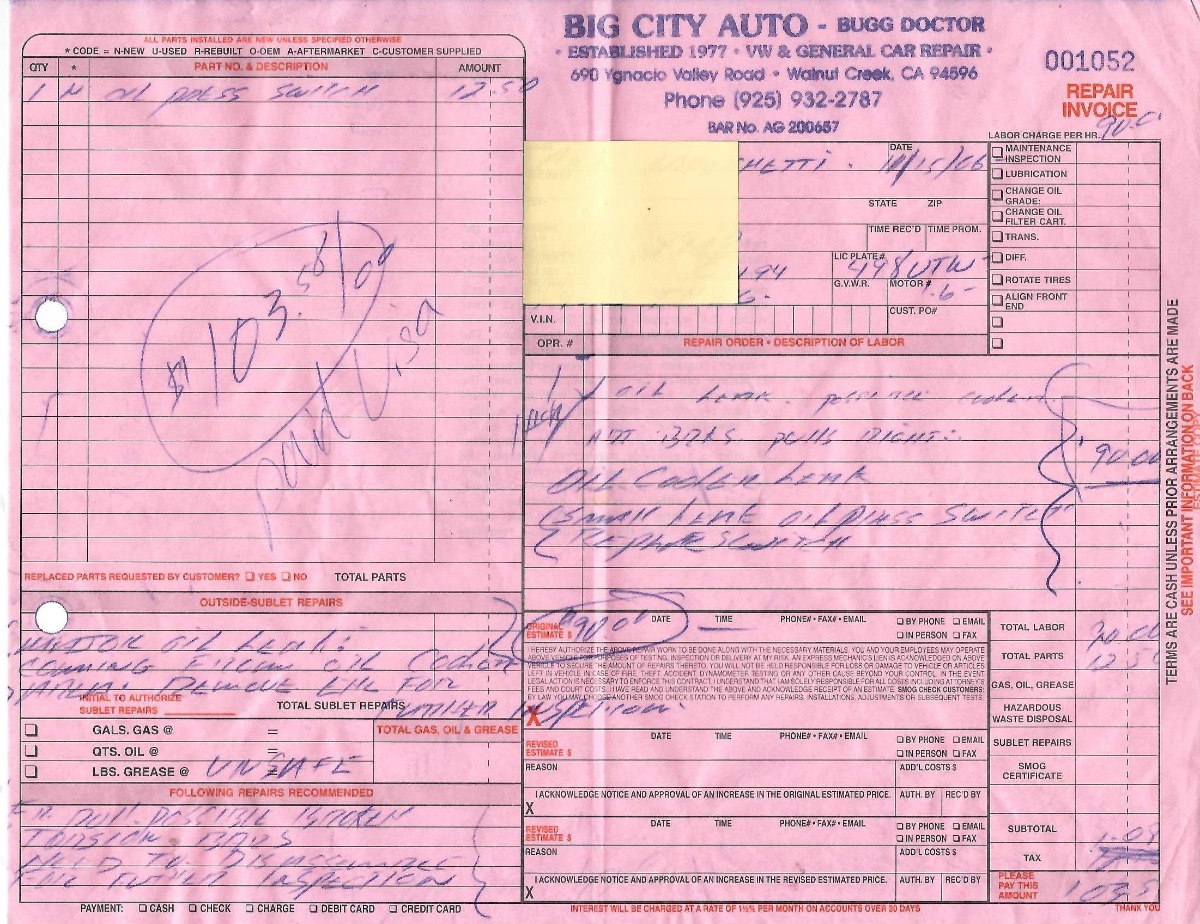 BIG CITY AUTO - BUGG DOCTOR
• ESTABLISHED 1977 • VW & GENERAL CAR REPAIR •
690 Ygnacio Valley Road • Walnut Creek, CA 94596
Phone (925) 932-2787
BAR No. AG 200657
001052
REPAIR
INVOICE
LABOR CHARGE PER HR.
ALL PARTS INSTALLED ARE NEW UNLESS SPECIFIED OTHERWISE
* CODE = N-NEW U-USED R-REBUILT O-OEM A-AFTERMARKET C-CUSTOMER SUPPLIED
QTY * PART NO. & DESCRIPTION AMOUNT
1 N OIL PRESS SWITCH 12.50
$103.58/00
paid Visa
REPLACED PARTS REQUESTED BY CUSTOMER? YES NO TOTAL PARTS
OUTSIDE-SUBLET REPAIRS
OIL LEAK:
COMMING FROM OIL COOLER
REMOVE FOR
INITIAL TO AUTHORIZE
SUBLET REPAIRS
TOTAL SUBLET REPAIRS
GALS. GAS @ =
TOTAL GAS, OIL & GREASE
QTS. OIL @ =
LBS. GREASE @ =
UNSAFE
FOLLOWING REPAIRS RECOMMENDED
POSSIBLE BROKEN
TORSION BARS
NEED TO DISASSEMBLE
FOR FURTHER INSPECTION
PAYMENT: CASH CHECK CHARGE DEBIT CARD CREDIT CARD
HETTI. DATE 11/15/06
STATE ZIP
TIME REC'D TIME PROM.
194 LIC PLATE# 498UTW
G.V.W.R. MOTOR # 1.6-
V.I.N. CUST. PO#
OPR. # REPAIR ORDER • DESCRIPTION OF LABOR
MAINTENANCE
INSPECTION
LUBRICATION
CHANGE OIL
GRADE:
CHANGE OIL
FILTER CART.
TRANS.
DIFF.
ROTATE TIRES
ALIGN FRONT
END
OIL LEAK. COOLER
PULLS RIGHT:
90.00
OIL COOLER LEAK
SMALL LEAK OIL PRESS SWITCH
REPLACE SWITCH
ORIGINAL
ESTIMATE $ 90.00
DATE TIME PHONE# • FAX# • EMAIL BY PHONE EMAIL
IN PERSON FAX
I HEREBY AUTHORIZE THE ABOVE REPAIR WORK TO BE DONE ALONG WITH THE NECESSARY MATERIALS. YOU AND YOUR EMPLOYEES MAY OPERATE
ABOVE VEHICLE FOR PURPOSES OF TESTING, INSPECTION OR DELIVERY AT MY RISK. AN EXPRESS MECHANIC'S LIEN IS ACKNOWLEDGED ON ABOVE
VEHICLE TO SECURE THE AMOUNT OF REPAIRS THERETO. YOU WILL NOT BE HELD RESPONSIBLE FOR LOSS OR DAMAGE TO VEHICLE OR ARTICLES
LEFT IN VEHICLE IN CASE OF FIRE, THEFT, ACCIDENT, DYNAMOMETER TESTING OR ANY OTHER CAUSE BEYOND YOUR CONTROL. IN THE EVENT
LEGAL ACTION IS NECESSARY TO ENFORCE THIS CONTRACT, I UNDERSTAND THAT I AM SOLELY RESPONSIBLE FOR ALL COSTS INCLUDING ATTORNEY'S
FEES AND COURT COSTS. I HAVE READ AND UNDERSTAND THE ABOVE AND ACKNOWLEDGE RECEIPT OF AN ESTIMATE. SMOG CHECK CUSTOMERS:
BY LAW YOU MAY CHOOSE ANOTHER SMOG CHECK STATION TO PERFORM ANY REPAIRS, INSTALLATIONS, ADJUSTMENTS OR SUBSEQUENT TESTS.
X
REVISED
ESTIMATE $
DATE TIME PHONE# • FAX# • EMAIL BY PHONE EMAIL
IN PERSON FAX
REASON ADD'L COSTS $
I ACKNOWLEDGE NOTICE AND APPROVAL OF AN INCREASE IN THE ORIGINAL ESTIMATED PRICE. AUTH. BY REC'D BY
X
REVISED
ESTIMATE $
DATE TIME PHONE# • FAX# • EMAIL BY PHONE EMAIL
IN PERSON FAX
REASON ADD'L COSTS $
I ACKNOWLEDGE NOTICE AND APPROVAL OF AN INCREASE IN THE REVISED ESTIMATED PRICE. AUTH. BY REC'D BY
X
INTEREST WILL BE CHARGED AT A RATE OF 1½% PER MONTH ON ACCOUNTS OVER 30 DAYS
TOTAL LABOR
TOTAL PARTS
GAS, OIL, GREASE
HAZARDOUS
WASTE DISPOSAL
SUBLET REPAIRS
SMOG
CERTIFICATE
SUBTOTAL
TAX
PLEASE
PAY THIS
AMOUNT 103.5
THANK YOU
TERMS ARE CASH UNLESS PRIOR ARRANGEMENTS ARE MADE
SEE IMPORTANT INFORMATION ON BACK